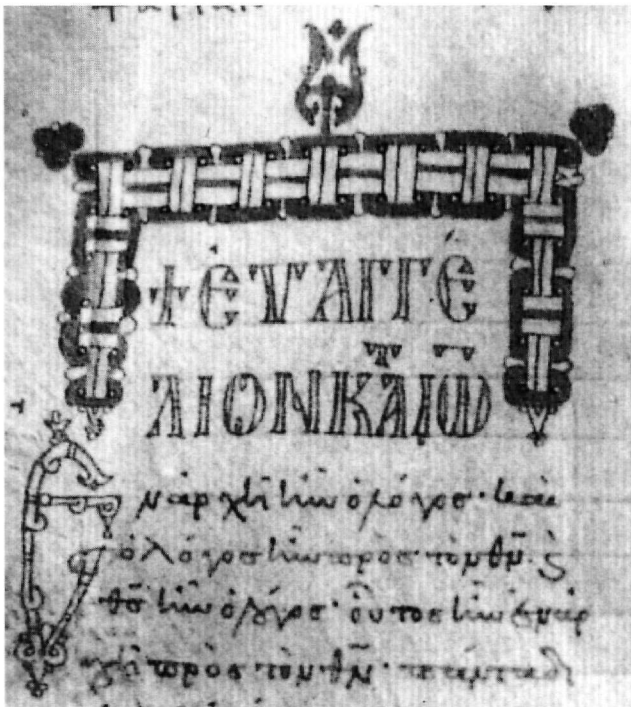 + ἘΥἈΓΓΈ
ΛΙΟΝ Κ̅Α̅Τ ΙΩ̅
Ἐν ἀρχῆ ἦν ὁ λόγος· καὶ
ὁ λόγος ἦν πρὸς τὸν θ̅ν̅· ϗ
θ̅ς̅ ἦν ὁ λόγος· οὗτος ἦν ἐν ἀρ
χῆ πρὸς τὸν θ̅ν̅· πάντα δι